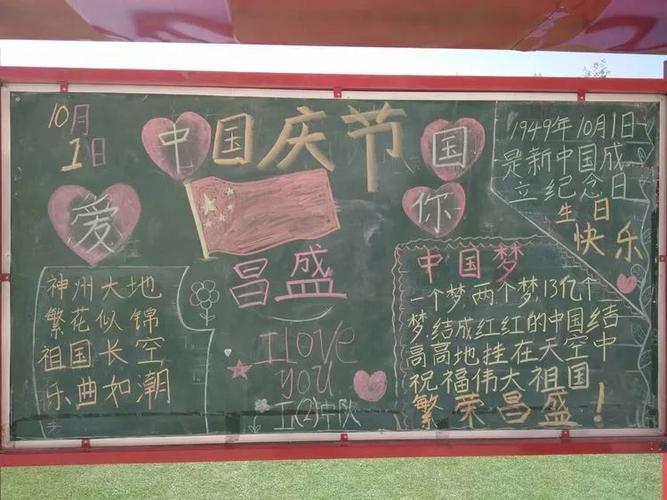 10月
1日
中国庆节
国
爱
你
昌盛
I love
you
1(2)中队
神州大地
繁花似锦
祖国长空
乐曲如潮
1949年10月1日
是新中国成
立纪念日
生日
快乐
中国梦
一个梦,两个梦,13亿个
梦,结成红红的中国结
高高地挂在天空中
祝福伟大祖国
繁荣昌盛!